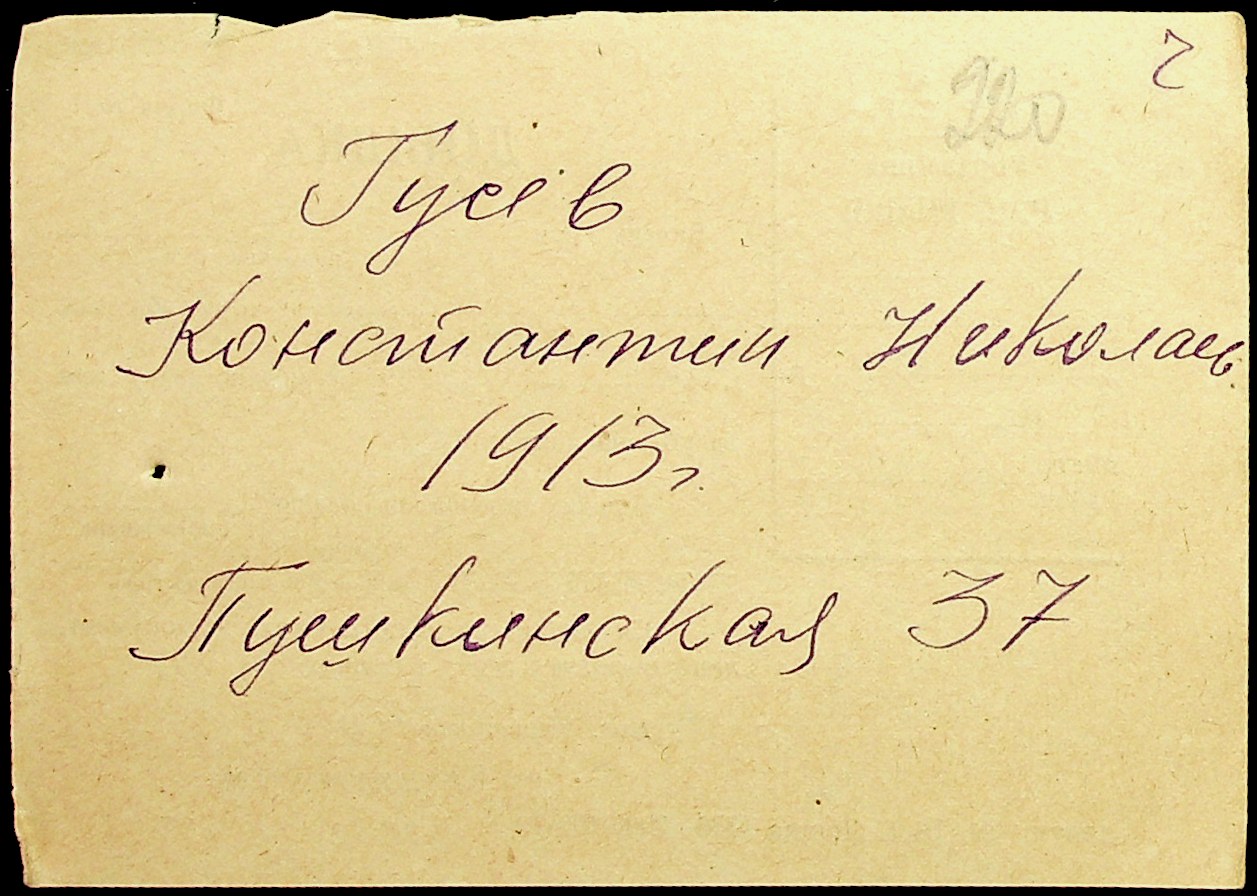 г
220
Гусев
Константин Николаев
1913г.
Пушкинская 37